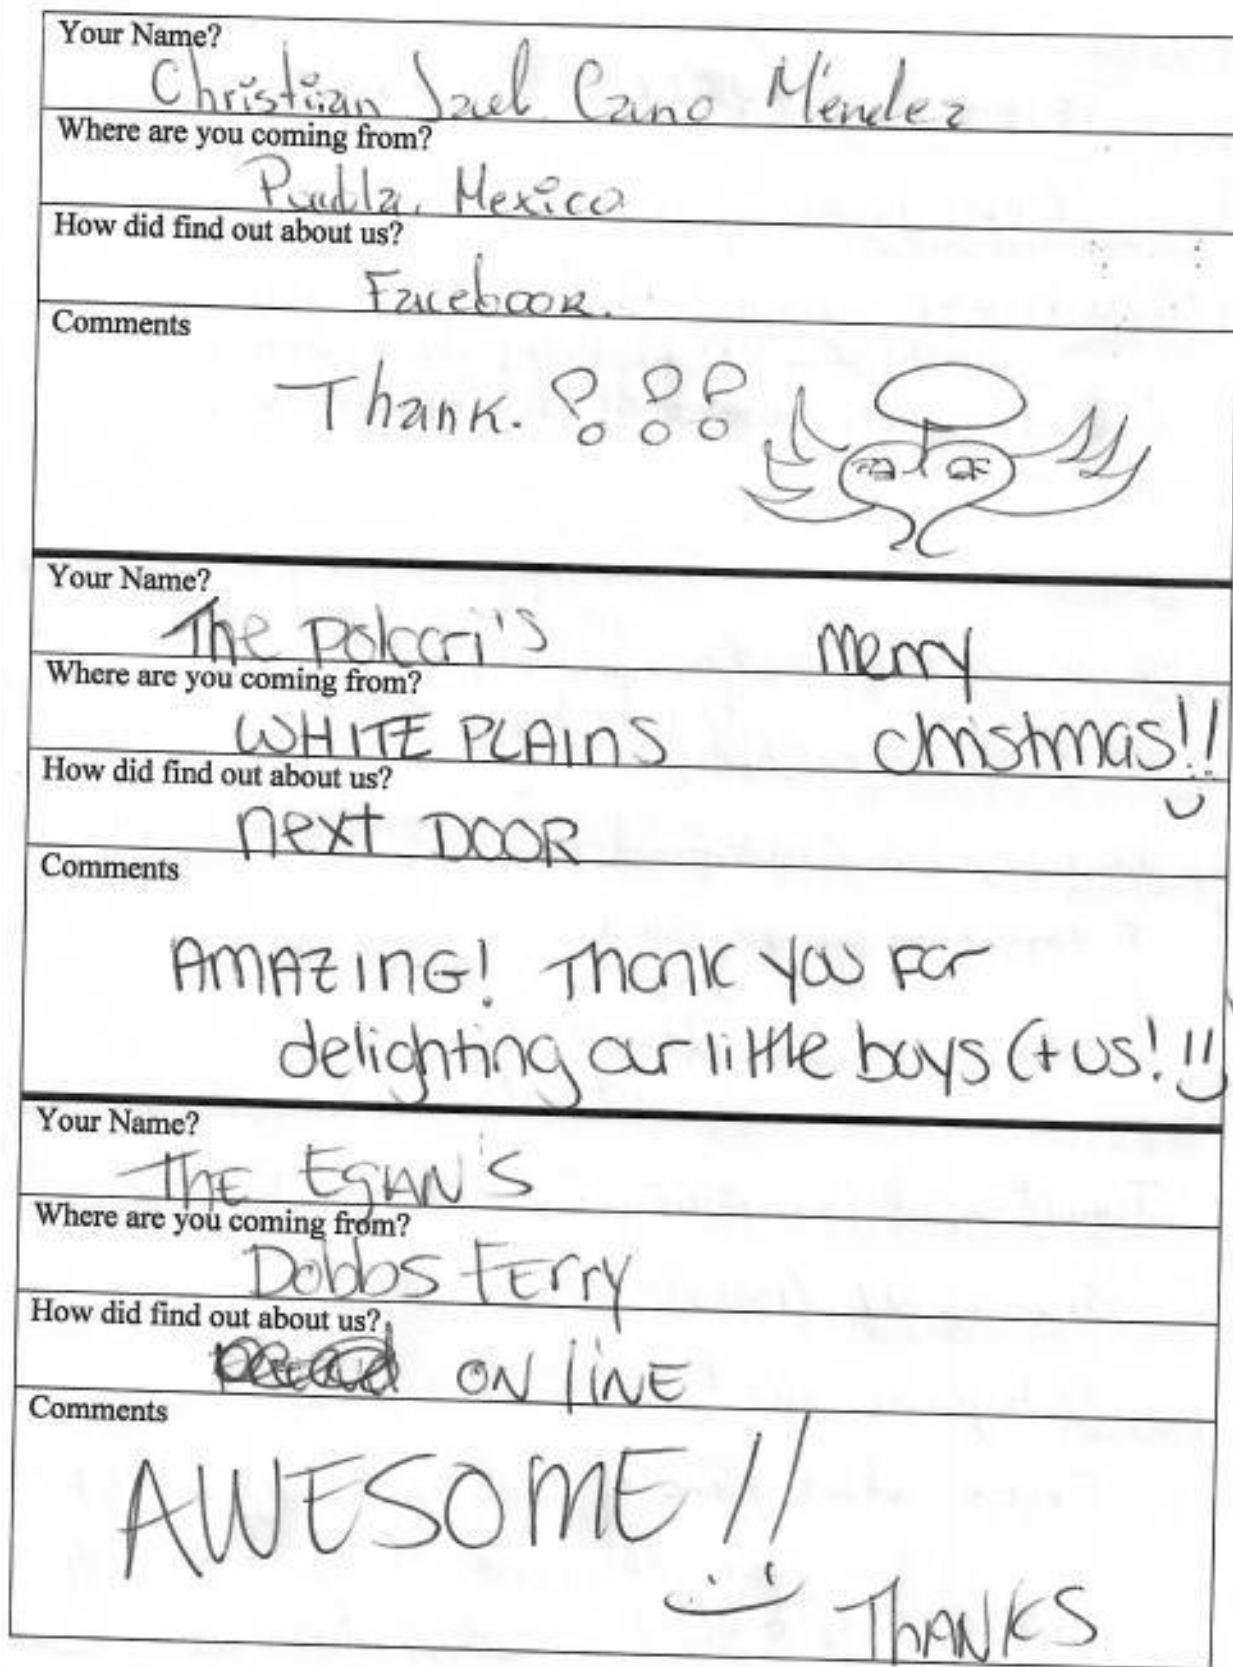 Your Name?
Christian Jael Cano Méndez
Where are you coming from?
Puebla, Mexico
How did find out about us?
Facebook.
Comments
Thank. !!!
Your Name?
The Polccri's Merry
Where are you coming from?
WHITE PLAINS christmas!!
How did find out about us?
next DOOR
Comments
AMAZING! Thank you For
delighting our little boys (+ us! !!)
Your Name?
THE EGAN'S
Where are you coming from?
Dobbs FErry
How did find out about us?
ON lINE
Comments
AWESOME!!
THANKS